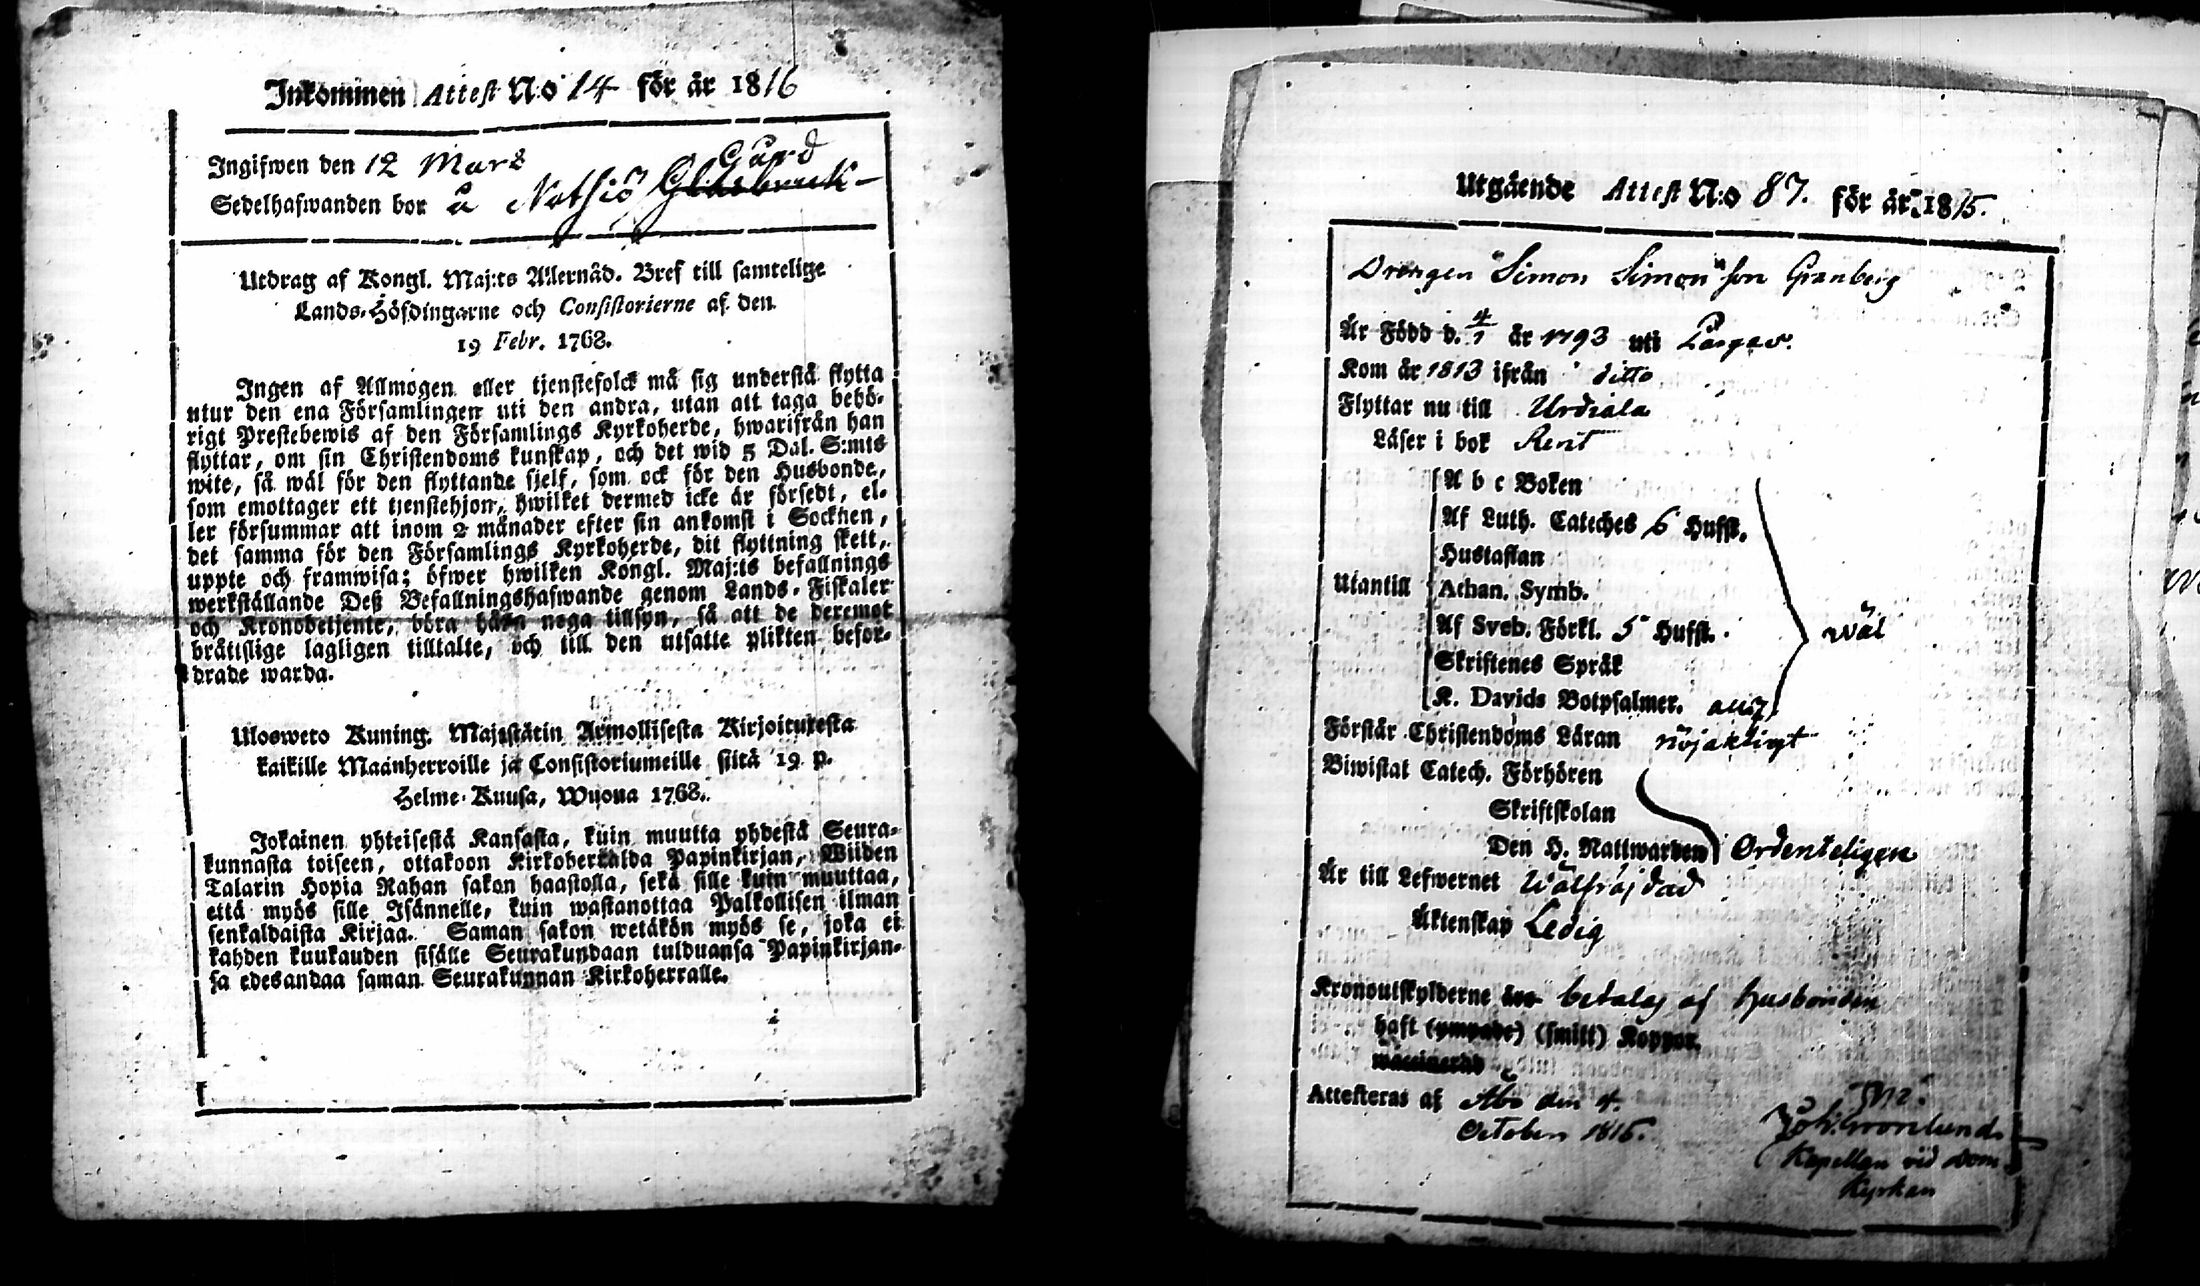 Inkommen Attest N:o 14 för år 1816
Ingifwen den 12 Mars
Gård
Sedelhafwanden bor å Notsjö Glasbruk
Utdrag af Kongl. Maj:ts Allernåd. Bref till samtelige
Lands-Höfdingarne och Consistorierne af den
19 Febr. 1768.
Ingen af Allmogen eller tjenstefolck må sig understå flytta
utur den ena Församlingen uti den andra, utan att taga behö-
rigt Prestebewis af den Församlings Kyrkoherde, hwarifrån han
flyttar, om sin Christendoms kunskap, och det wid 5 Dal. S:mts
wite, så wäl för den flyttande sjelf, som ock för den Husbonde,
som emottager ett tjenstehjon, hwilket dermed icke är försedt, el-
ler försummar att inom 2 månader efter sin ankomst i Socknen,
det samma för den Församlings Kyrkoherde, dit flyttning skett,
uppte och framwisa; öfwer hwilken Kongl. Maj:ts befallnings
werkställande Deß Befallningshafwande genom Lands-Fiskaler
och Kronobetjente, böra hafa noga tillsyn, så att de deremot
bråttslige lagligen tilltalte, och till den utsatte plikten befor-
drade warda.
Ulosweto Kuning. Majestätin Armollisesta Kirjoituxesta
kaikille Maanherroille ja Consistoriumeille siitä 19 p.
Helme-Kuusa, Wuona 1768.
Jokainen yhteisestä Kansasta, kuin muutta yhdestä Seura-
kunnasta toiseen, ottakoon Kirkoherralda Papinkirjan, Wiiden
Talarin Hopia Rahan sakon haastolla, sekä sille kuin muuttaa,
että myös sille Isännelle, kuin wastanottaa Palkollisen ilman
senkaldaista Kirjaa. Saman sakon wetäkön myös se, joka ei
kahden kuukauden sisälle Seurakundaan tulduansa Papinkirjan-
sa edesandaa saman Seurakunnan Kirkoherralle.
Utgående Attest N:o 87. för år 1815.
Drengen Simon Simonsson Granberg
Är Född d. 4/1 år 1793 uti Pargas.
Kom år 1813 ifrån ditto
Flyttar nu till Urdiala
Läser i bok Rent
A b c Boken
Af Luth. Cateches 6 Hufst.
Hustaflan
Utantill Athan. Symb.
Af Sveb. Förkl. 5 Hufst. wäl
Skriftenes Språk
K. Davids Botpsalmer.
Förstår Christendoms Läran nöjaktigt
Biwistat Catech. Förhören
Skriftskolan
Den H. Nattwarden Ordenteligen
Är till Lefwernet Wälfräjdad
Äktenskap Ledig
Kronoutskylderne äro betalas af Husbonden
haft (ympade) (smitt) Koppor.
waccinerad
Attesteras af Åbo den 4.
October 1815.
Joh. Grönlund
Kapellan vid Dom
Kyrkan